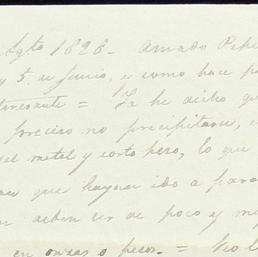 Agto 1828 - Amado Pepe
y 5 de Junio, y como hace p
teresante = Ya he dicho qu
forcioso no precipitarse,
del metal y corto peso, lo que
que hayan ido a para
deben ser de poco y m
en onzas o pesos. =